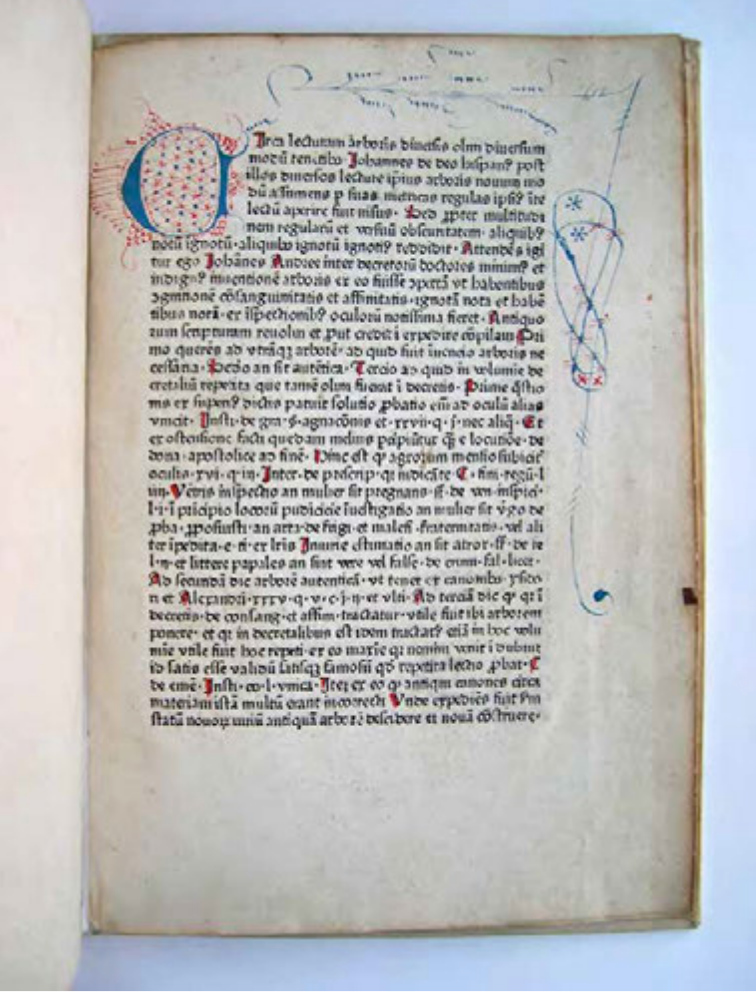 Circa lecturam arboris diversis olim diversum
modū tenētibꝰ Johannes de deo hispanꝰ post
illos diversos lecture ipius arboris novum mo
dū assumens p suas metricas regulas ipiꝰ īte
lectū aperire fuit nisus · Sed ꝓpter multitudi
nem regularū et versuū obscuritatem · aliquibꝰ
notū ignotū · aliquibꝰ ignotū ignotiꝰ reddidit · Attendēs igi
tur ego Johānes Andree inter decretorū doctores minimꝰ et
indignꝰ inventionē arboris ex eo fuisse apertā vt habentibus
agnitionē cōsanguinitatis et affinitatis · ignota nota et habē
tibus nota · ex īspectionibꝰ oculorū notissima fieret · Antiquo
rum scripturam revolvi et ꝓut credidi expedire cōpilavi Pri
mo querēs ad vtrāqꝫ arborē · ad quid fuit īventio arboris ne
cessaria · Secūdo an sit autētica · Tercio ad quid in volumine de
cretaliū repetita que tamē olim fuerat ī decretis · Prime q̄stio
nis ex supeꝰ dictis patuit solutio ꝓbatio enī ad oculū alias
vincit · Insti · de gra · s · agnacōnis et · xxvii · q · j · nec aliq̄ · Et
ex ostensione facti quedam melius pcipiūtur q̄ e locutiōe · de
dona · apostolice ad finē · Hinc est qꝰ agrorum mentio subicit
oculis · xvi · q · iii · Inter · de prescrip · qꝛ indicāte · C · fini · regū · l
iii · Veteris inspectio an mulier sit pregnans · ff · de ven · inspici ·
l · i · ī pricipio locorū pudicicie īuestigatio an mulier sit v̄go de
ꝓba · ꝓposuisti · an arta · de frigi · et malefi · fraternitatis · vel ali
ter īpedita · e · ti · ex lris Iniurie estimatio an sit atrox · ff · de re
l · ii · et littere papales an sint vere vel false · de crimi · fal · licet ·
Ad secundā dic arborē autenticā · vt tenet ex canonibꝰ ysido
ri et Alexandri · xxxv · q · v · c · j · ii · et vlti · Ad terciā dic qꝰ qꝛ ī
decretis · de consang · et affini · tractatur · vtile fuit ibi arborem
ponere · et qꝛ in decretalibus est idem tractatꝰ etiā in hoc volu
mīe vtile fuit hoc repeti · ex eo maxīe qꝛ nomini venit ī dubiū
id satis esse validū satisqꝫ famosū qd̄ repetita lectio ꝓbat · C
de emē · Insti · co · l · vnica · Itez ex eo qꝰ antiqui canones circa
materiam istā multū erant incorrecti Vnde expediēs fuit s̄m
statū novoꝝ iuriū antiquā arborē describere et nouā cōstruere ·